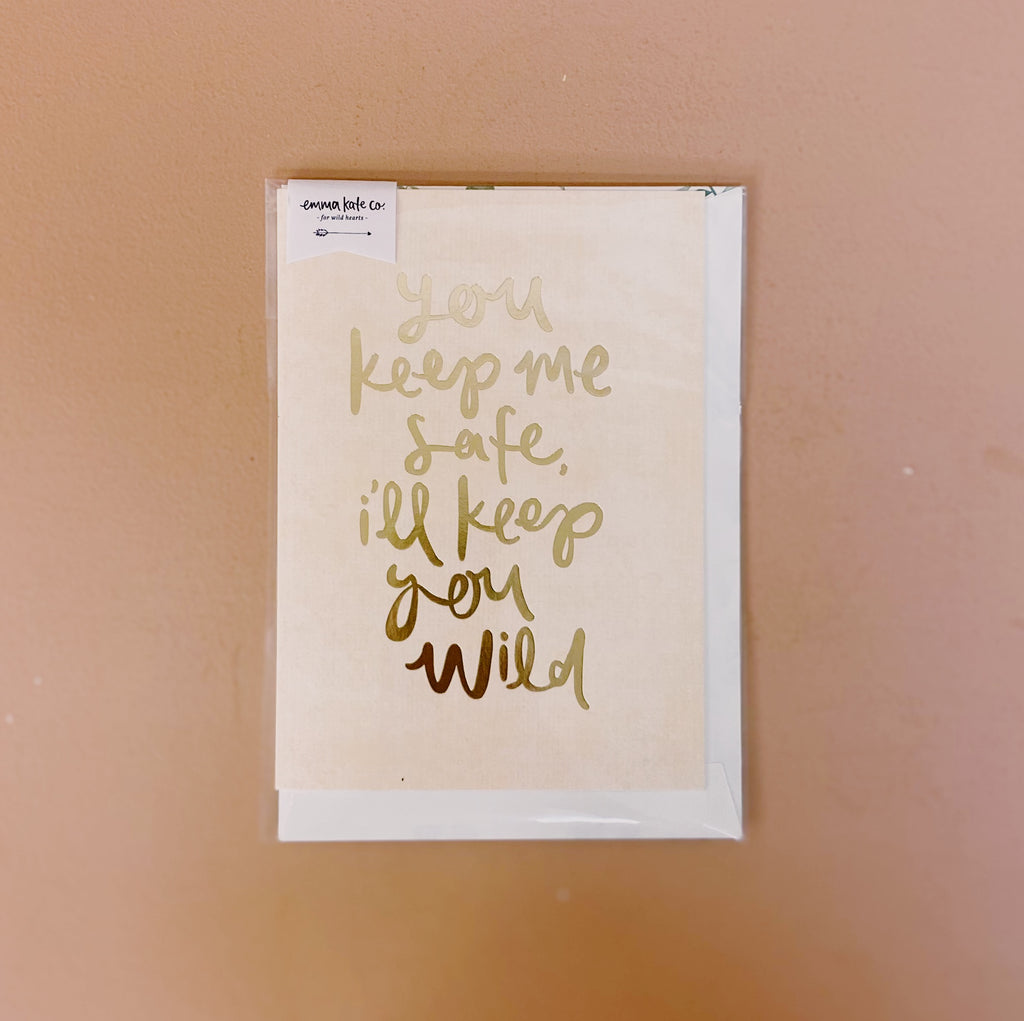 emma kate co.
- for wild hearts -
you
keep me
safe,
i'll keep
you
wild